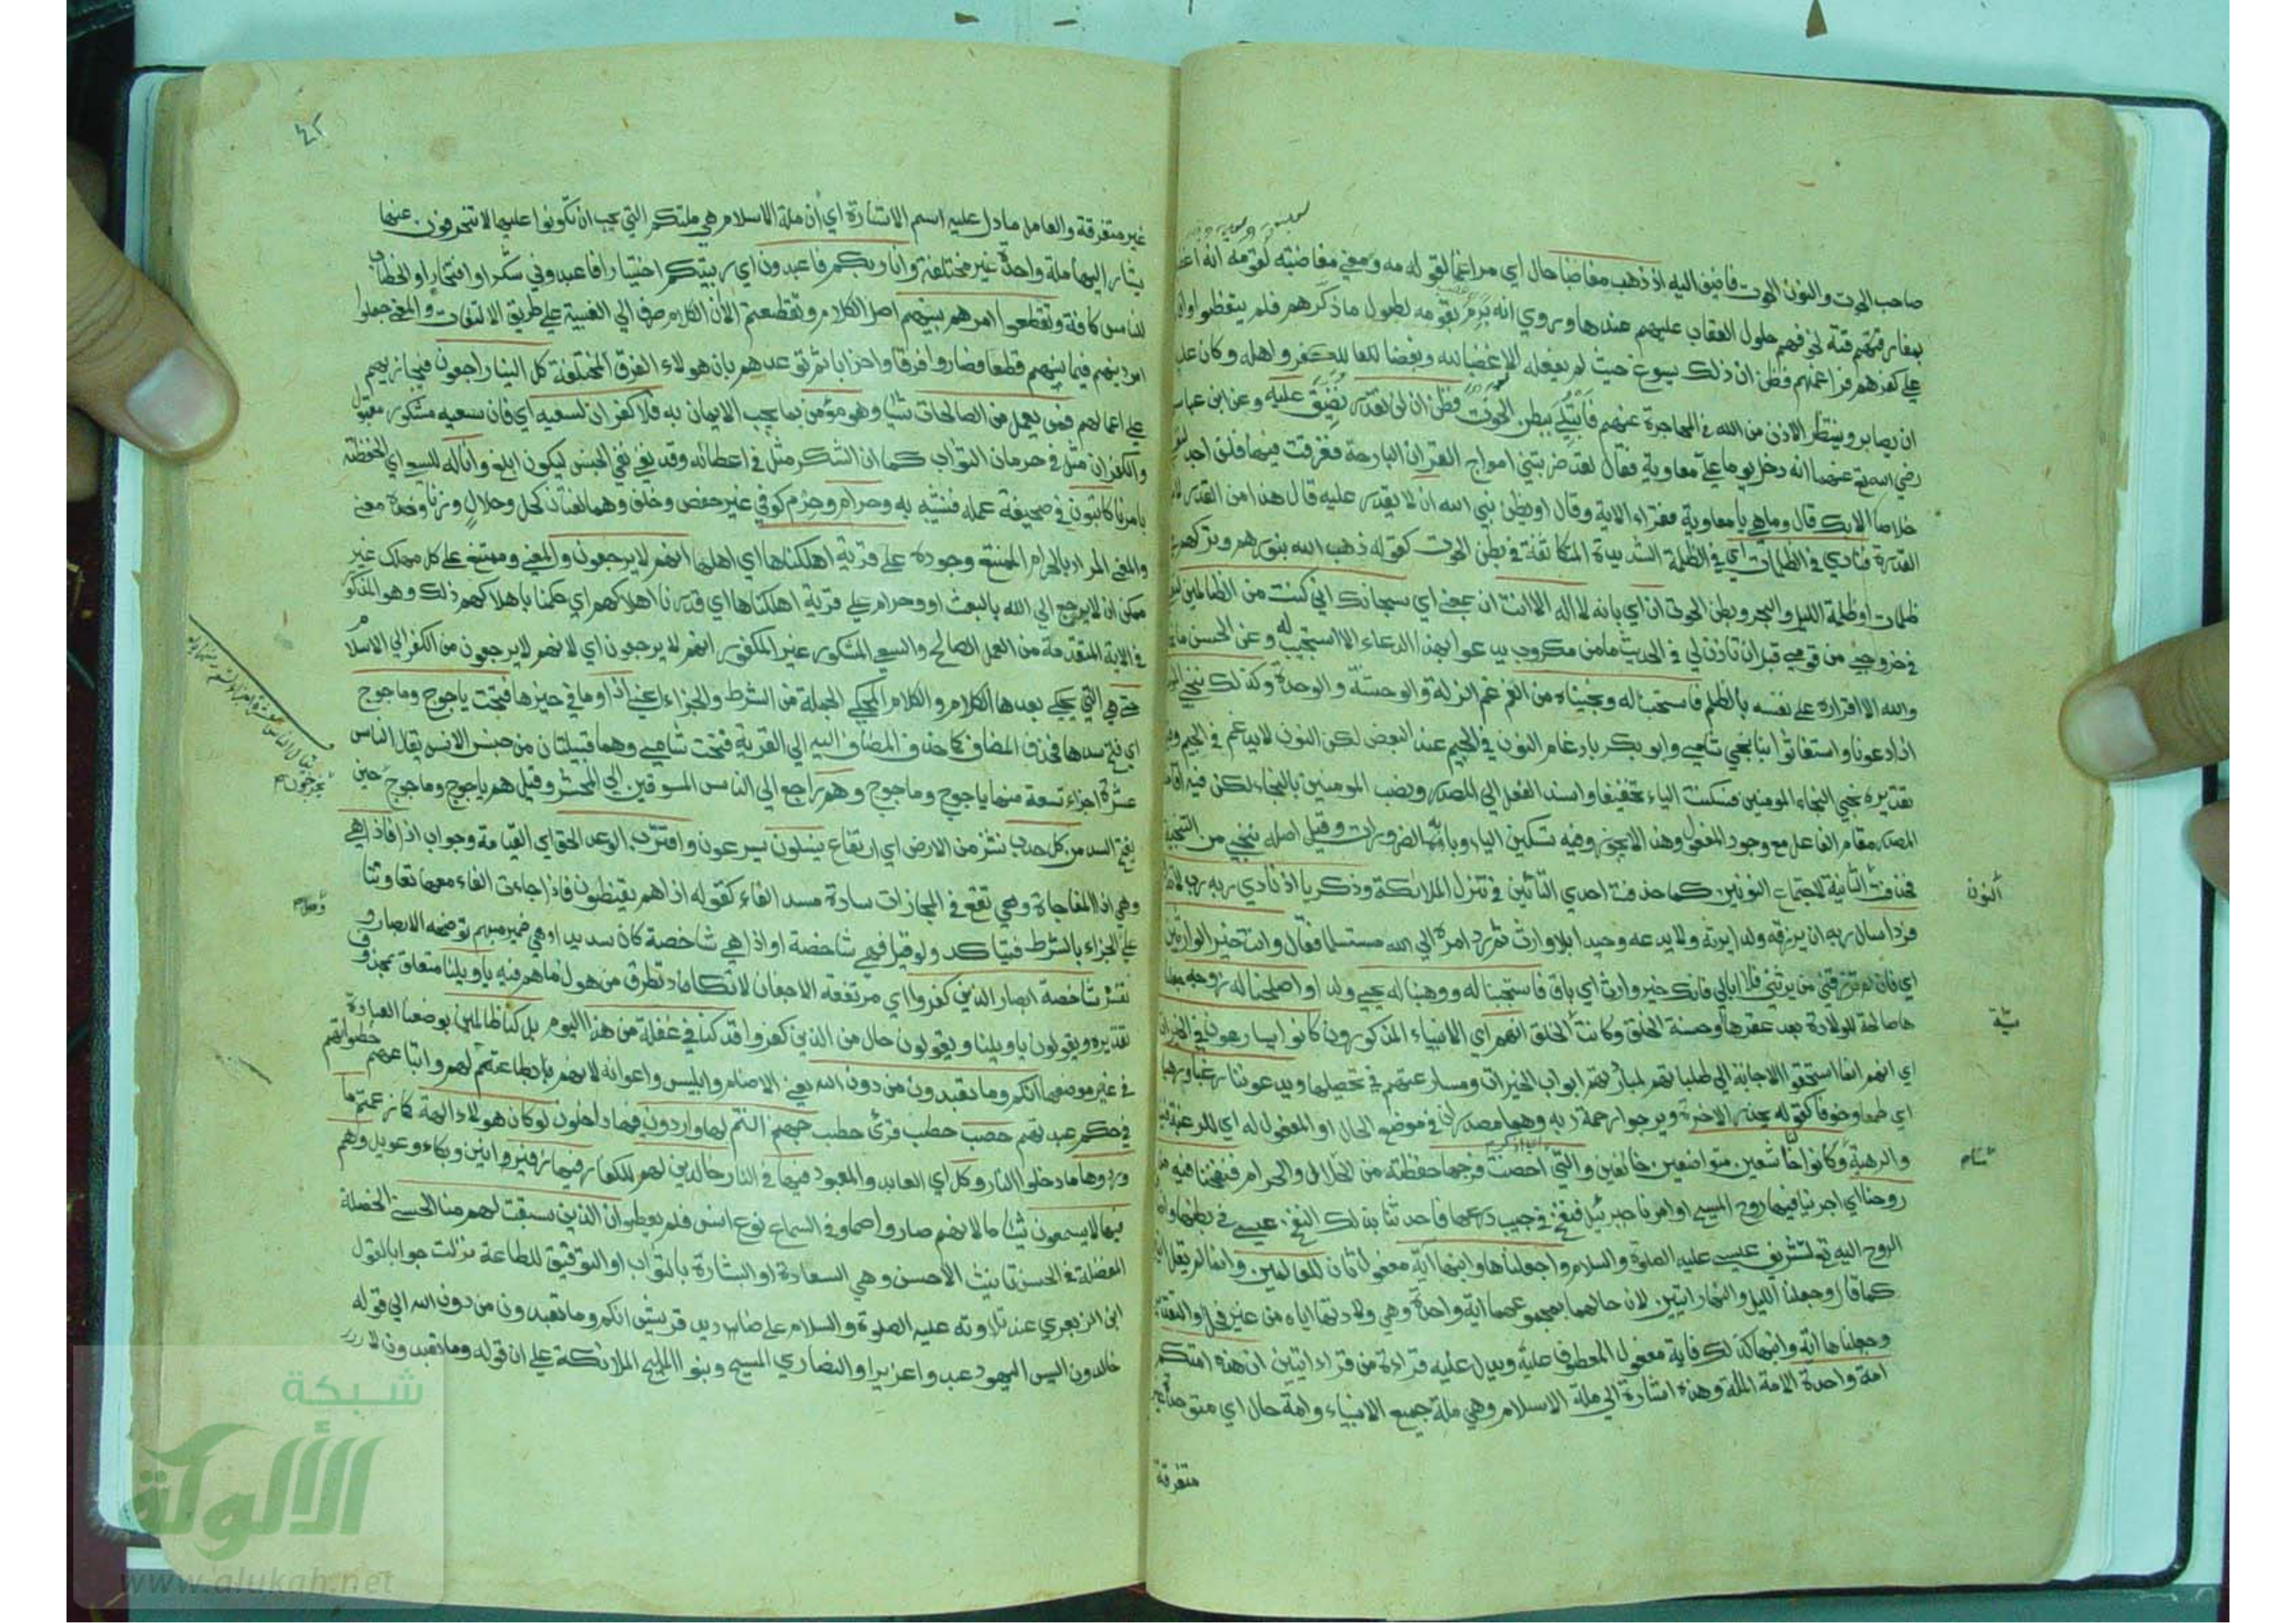 صاحب الحوت والنون الحوت فاضيف اليه اذ ذهب مغاضبا حال اي مراغما لقومه ومعنى مغاضبته لقومه انه اغضبهم
بمفارقتهم لخوفهم حلول العقاب عليهم عندها وروي انه برم بقومه لطول ما ذكرهم فلم يتعظوا واقاموا
على كفرهم فراغمهم فظن ان ذلك يسوغ حيث لم يفعله الا غضبا لله وبغضا للكفر واهله وكان عليه
ان يصابر وينتظر الاذن من الله في المهاجرة عنهم فابتلي ببطن الحوت فظن ان لن نقدر نضيق عليه وعن ابن عباس
رضي الله عنهما انه دخل يوما على معاوية فقال لقد ضربتني امواج القران البارحة فغرقت فيها فلم اجد لنفسي
خلاصا الا بك قال وما هي يا معاوية فقراء الاية وقال او يظن نبي الله ان لا يقدر عليه قال هذا من القدر لا من
القدرة فنادى في الظلمات اي في الظلمة الشديدة المتكاثفة في بطن الحوت كقوله ذهب الله بنورهم وتركهم في
ظلمات او ظلمة الليل والبحر وبطن الحوت ان اي بانه لا اله الا انت ان بمعنى اي سبحانك اني كنت من الظالمين لنفسي
في خروجي من قومي قبل ان تاذن لي في الحديث ما من مكروب يدعو بهذا الدعاء الا استجيب له وعن الحسن ما نجاه
والله الا اقراره على نفسه بالظلم فاستجبنا له ونجيناه من الغم غم الزلة والوحشة والوحدة وكذلك ننجي المؤمنين
اذا دعونا واستغاثوا بنا نجي شامي وابو بكر بادغام النون في الجيم عند البعض لكن النون لا يدغم في الجيم وقيل
تقديره نجي النجاء المومنين فسكنت الياء تخفيفا واسند الفعل الى المصدر ونصب المومنين بالنجاء لكن فيه اقامة
المصدر مقام الفاعل مع وجود المفعول وهذا لا يجوز وفيه تسكين الياء وبابه الضرورات وقيل اصله ننجي من التنجية
فحذفت الثانية لاجتماع النونين كما حذفت احدى التائين في تنزل الملائكة وذكريا اذ نادى ربه رب لا تذرني
النون
فردا سال ربه ان يرزقه ولدا يرثه ولا يدعه وحيدا بلا وارث ثم رد امره الى الله مستسلما فقال وانت خير الوارثين
اي فان لم ترزقني من يرثني فلا ابالي فانك خير وارث اي باق فاستجبنا له ووهبنا له يحيى ولدا واصلحنا له زوجه جعلنا
ها صالحة للولادة بعد عقرها وحسنة الخلق وكانت الخلق انهم اي الانبياء المذكورون كانوا يسارعون في الخيرات
اي انهم انما استحقوا الاجابة الى طلباتهم لمبادرتهم ابواب الخيرات ومسارعتهم في تحصيلها ويدعوننا رغبا ورهبا
اي طمعا وخوفا كقوله يحذر الاخرة ويرجوا رحمة ربه وهما مصدران في موضع الحال او المفعول له اي للرغبة فينا
والرهبة وكانوا لنا خاشعين متواضعين خائفين والتي احصنت فرجها حفظته من الحلال والحرام فنفخنا فيها من
روحنا اي اجرينا فيها روح المسيح او امرنا جبرئيل فنفخ في جيب درعها فاحدثنا بذلك النفخ عيسى في بطنها واضافة
الروح اليه تع لتشريف عيسى عليه الصلوة والسلام وجعلناها وابنها اية مفعول ثان للعالمين وانما لم يقل ايتين
كما قال وجعلنا الليل والنهار ايتين لان حالهما بمجموعهما اية واحدة وهي ولادتها اياه من غير فحل او التقدير
وجعلناها اية وابنها كذلك فاية مفعول المعطوف عليه ويدل عليه قراءة من قراء ايتين ان هذه امتكم
امة واحدة الامة الملة وهذه اشارة الى ملة الاسلام وهي ملة جميع الانبياء وامة حال اي متوحدة غير
متفرقة
غير متفرقة والعامل ما دل عليه اسم الاشارة اي ان ملة الاسلام هي ملتكم التي يجب ان تكونوا عليها لا تنحرفون عنها
يشار اليها ملة واحدة غير مختلفة وانا ربكم فاعبدون اي ربيتكم اختيارا فاعبدوني شكرا وافتخارا والخطاب
للناس كافة وتقطعوا امرهم بينهم اصل الكلام وتقطعتم الا ان الكلام صرف الى الغيبة على طريق الالتفات والمعنى جعلوا
امر دينهم فيما بينهم قطعا فصاروا فرقا واحزابا ثم توعدهم بان هولاء الفرق المختلفة كل الينا راجعون فنجازيهم
على اعمالهم فمن يعمل من الصالحات شيئا وهو مؤمن بما يجب الايمان به فلا كفران لسعيه اي فان سعيه مشكور مقبول
والكفران مثل في حرمان الثواب كما ان الشكر مثل في اعطائه وقد نفى نفي الجنس ليكون ابلغ وانا له للسعي اي الحفظة
بامرنا كاتبون في صحيفة عمله فنثيبه به وحرام وحرم كوفي غير حفص وخلف وهما لغتان كحل وحلال وزنا وضده معنى
والمعنى المراد بالحرام الممتنع وجوده على قرية اهلكناها اي اهلها انهم لا يرجعون والمعنى وممتنع على كل مهلك غير
ممكن ان لا يرجع الى الله بالبعث او وحرام على قرية اهلكناها اي قدرنا اهلاكهم اي حكمنا باهلاكهم ذلك وهو المذكور
في الاية المتقدمة من العمل الصالح والسعي المشكور غير المكفور انهم لا يرجعون اي لانهم لا يرجعون من الكفر الى الاسلام
حتى هي التي يحكى بعدها الكلام والكلام المحكي الجملة من الشرط والجزاء اعني اذا وما في حيزها فتحت ياجوج وماجوج
اي فتح سدها فحذف المضاف كما حذف المضاف اليه الى القرية فتحت شامي وهما قبيلتان من جنس الانس يقال الناس
عشرة اجزاء تسعة منها ياجوج وماجوج وهم راجع الى الناس المسوقين الى المحشر وقيل هم ياجوج وماجوج حين
يفتح السد من كل حدب نشز من الارض اي ارتفاع ينسلون يسرعون واقترب الوعد الحق اي القيامة وجواب اذا فاذا هي
وهي اذا المفاجاة وهي تقع في المجازات سادة مسد الفاء كقوله اذا هم يقنطون فاذا جاءت الفاء معها تعاونتا
على الجزاء بالشرط فيتاكد ولو قيل فهي شاخصة او اذا هي شاخصة كان سديدا وهي ضمير مبهم توضحه الابصار و
تفسره شاخصة ابصار الذين كفروا اي مرتفعة الاجفان لا تكاد تطرق من هول ما هم فيه يا ويلنا متعلق بمحذوف
تقديره ويقولون يا ويلنا ويقولون حال من الذين كفروا قد كنا في غفلة من هذا اليوم بل كنا ظالمين بوضعنا العبادة
في غير موضعها انكم وما تعبدون من دون الله يعني الاصنام وابليس واعوانه لانهم بطاعتهم لهم واتباعهم خطواتهم
في حكم عبدتهم حصب حطب قرئ حطب جهنم انتم لها واردون فيها داخلون لو كان هولاء الهة كما زعمتم ما
وردوها ما دخلوا النار وكل اي العابد والمعبود فيها في النار خالدين لهم للكفار فيها زفير وانين وبكاء وعويل وهم
فيها لا يسمعون شيئا ما لانهم صاروا صما وفي السماع نوع انس فلم يعطوا ان الذين سبقت لهم منا الحسنى الخصلة
المفضلة في الحسن تانيث الاحسن وهي السعادة او البشارة بالثواب او التوفيق للطاعة نزلت جوابا لقول
ابن الزبعرى عند تلاوته عليه الصلوة والسلام على صناديد قريش انكم وما تعبدون من دون الله الى قوله
خالدون اليس اليهود عبدوا عزيرا والنصارى المسيح وبنوا المليح الملائكة على ان قوله وما تعبدون لا
شبكة
الألوكة
www.alukah.net